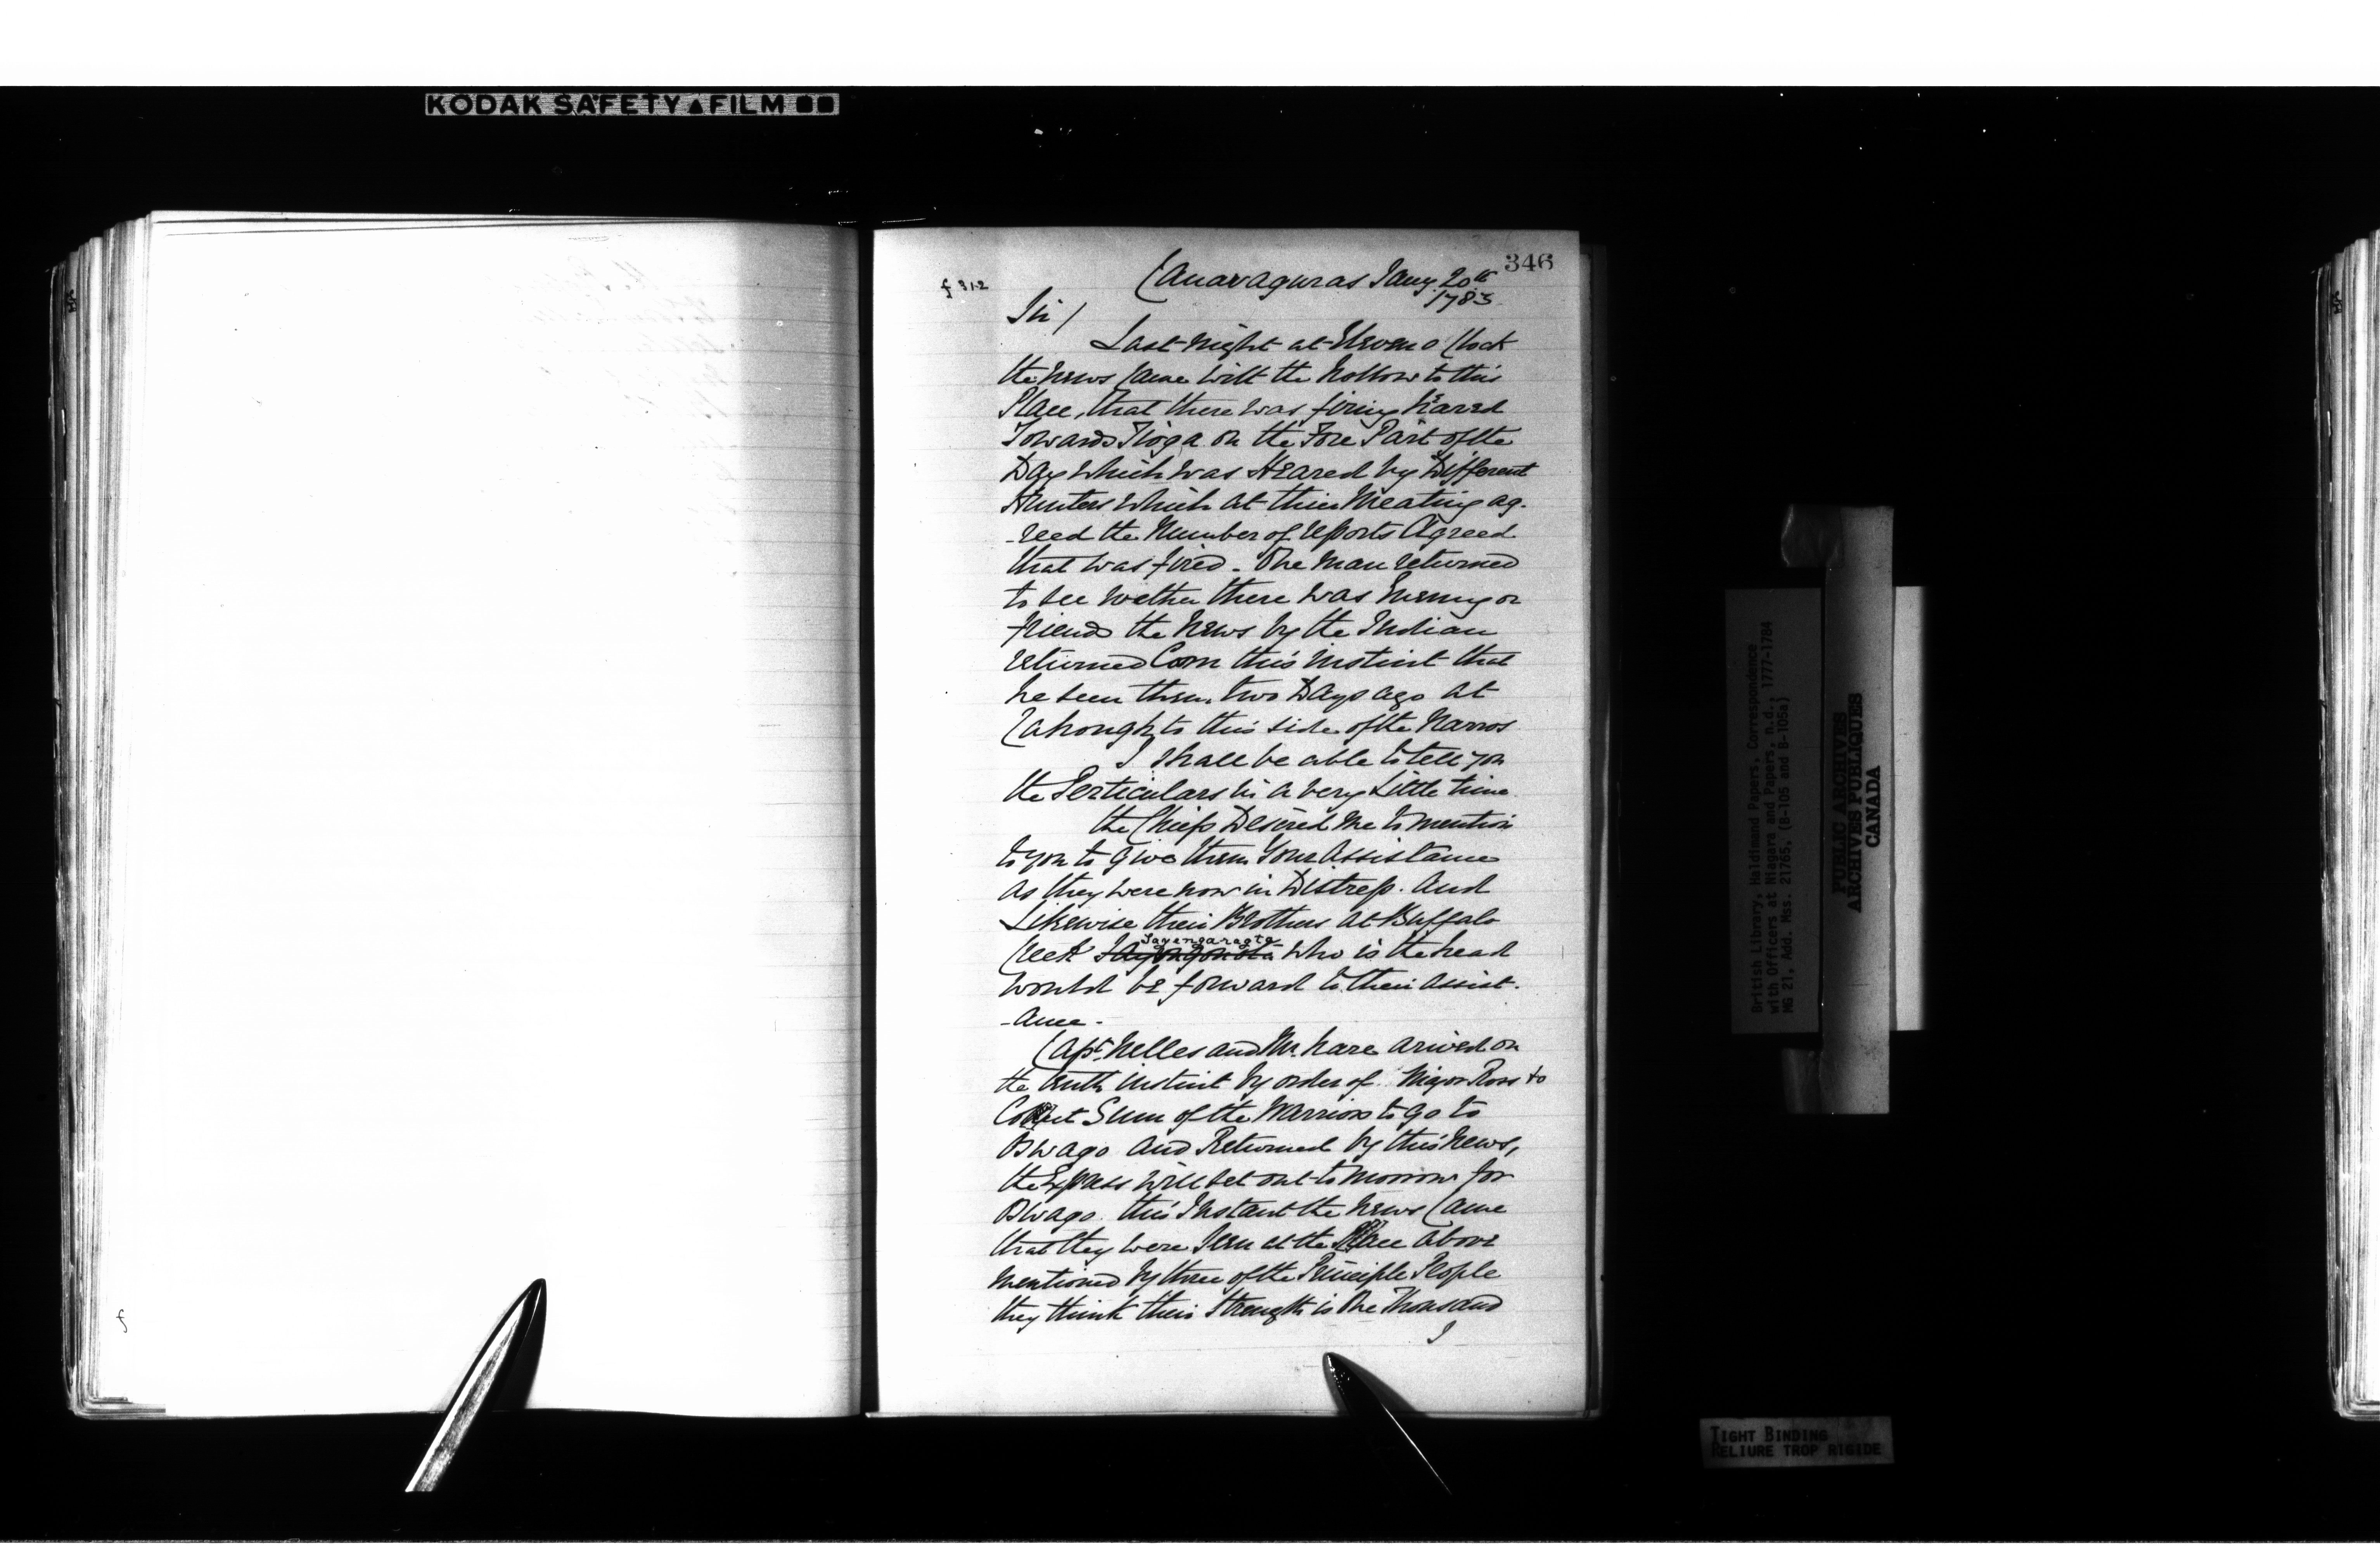 KODAK SAFETY FILM
346
f 312
Canavaguras Jany. 20th
1783.
Sir/
Last night at Eleven o Clock
the news Came with the hollow to this
Place, that there was firing heared
Towards Tioga on the Fore Part of the
Day which was Heared by Different
Hunters which at their Meating ag-
-reed the Number of reports Agreed
that was fired - One man returned
to see wether there was Enemy or
friends the news by the Indian
returned Com this instint that
he seen them two Days ago at
to this side of the Narros
I shall be able to tell you
the Perticulars in a very Little time
the Chiefs Desired me to mention
to you to give them Your Assistance
as they were now in Distress. And
Likewise their Brothers at Buffalo
Sayengaraghta
Creek who is the head
would be forward to their assist-
-ance -
Capt. Nelles and Mr. hare arived on
the tenth instint by order of Major Ross to
Collect Sum of the Warriors to go to
Oswago and Returned by this news,
the Express will set out to morrow for
Oswago. this Instant the news Came
that they were Seen at the Place above
mentioned by three of the Principle People
they think their Strength is One Thousand
I
f
British Library, Haldimand Papers, Correspondence
with Officers at Niagara and Papers, n.d., 1777-1784
MG 21, Add. Mss. 21765. (B-105 and B-105a)
PUBLIC ARCHIVES
ARCHIVES PUBLIQUES
CANADA
TIGHT BINDING
RELIURE TROP RIGIDE